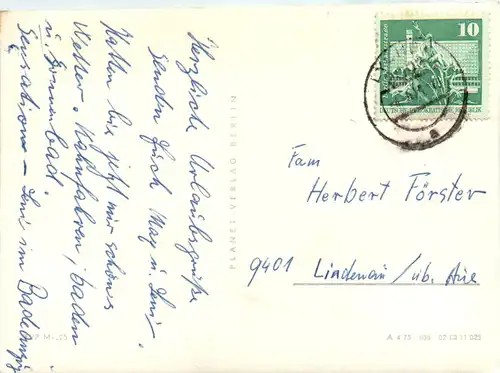 Herzliche Urlaubsgrüße
senden Euch Max u. Leni.
Hatten bis jetzt nur schönes
Wetter. Kahnfahren, baden
u. Sonnenbad.
Sensation – Leni im Badeanzug
PLANET-VERLAG BERLIN
10
DEUTSCHE DEMOKRATISCHE REPUBLIK
Fam
Herbert Förster
9401 Lindenau/üb. Aue
A 4/75